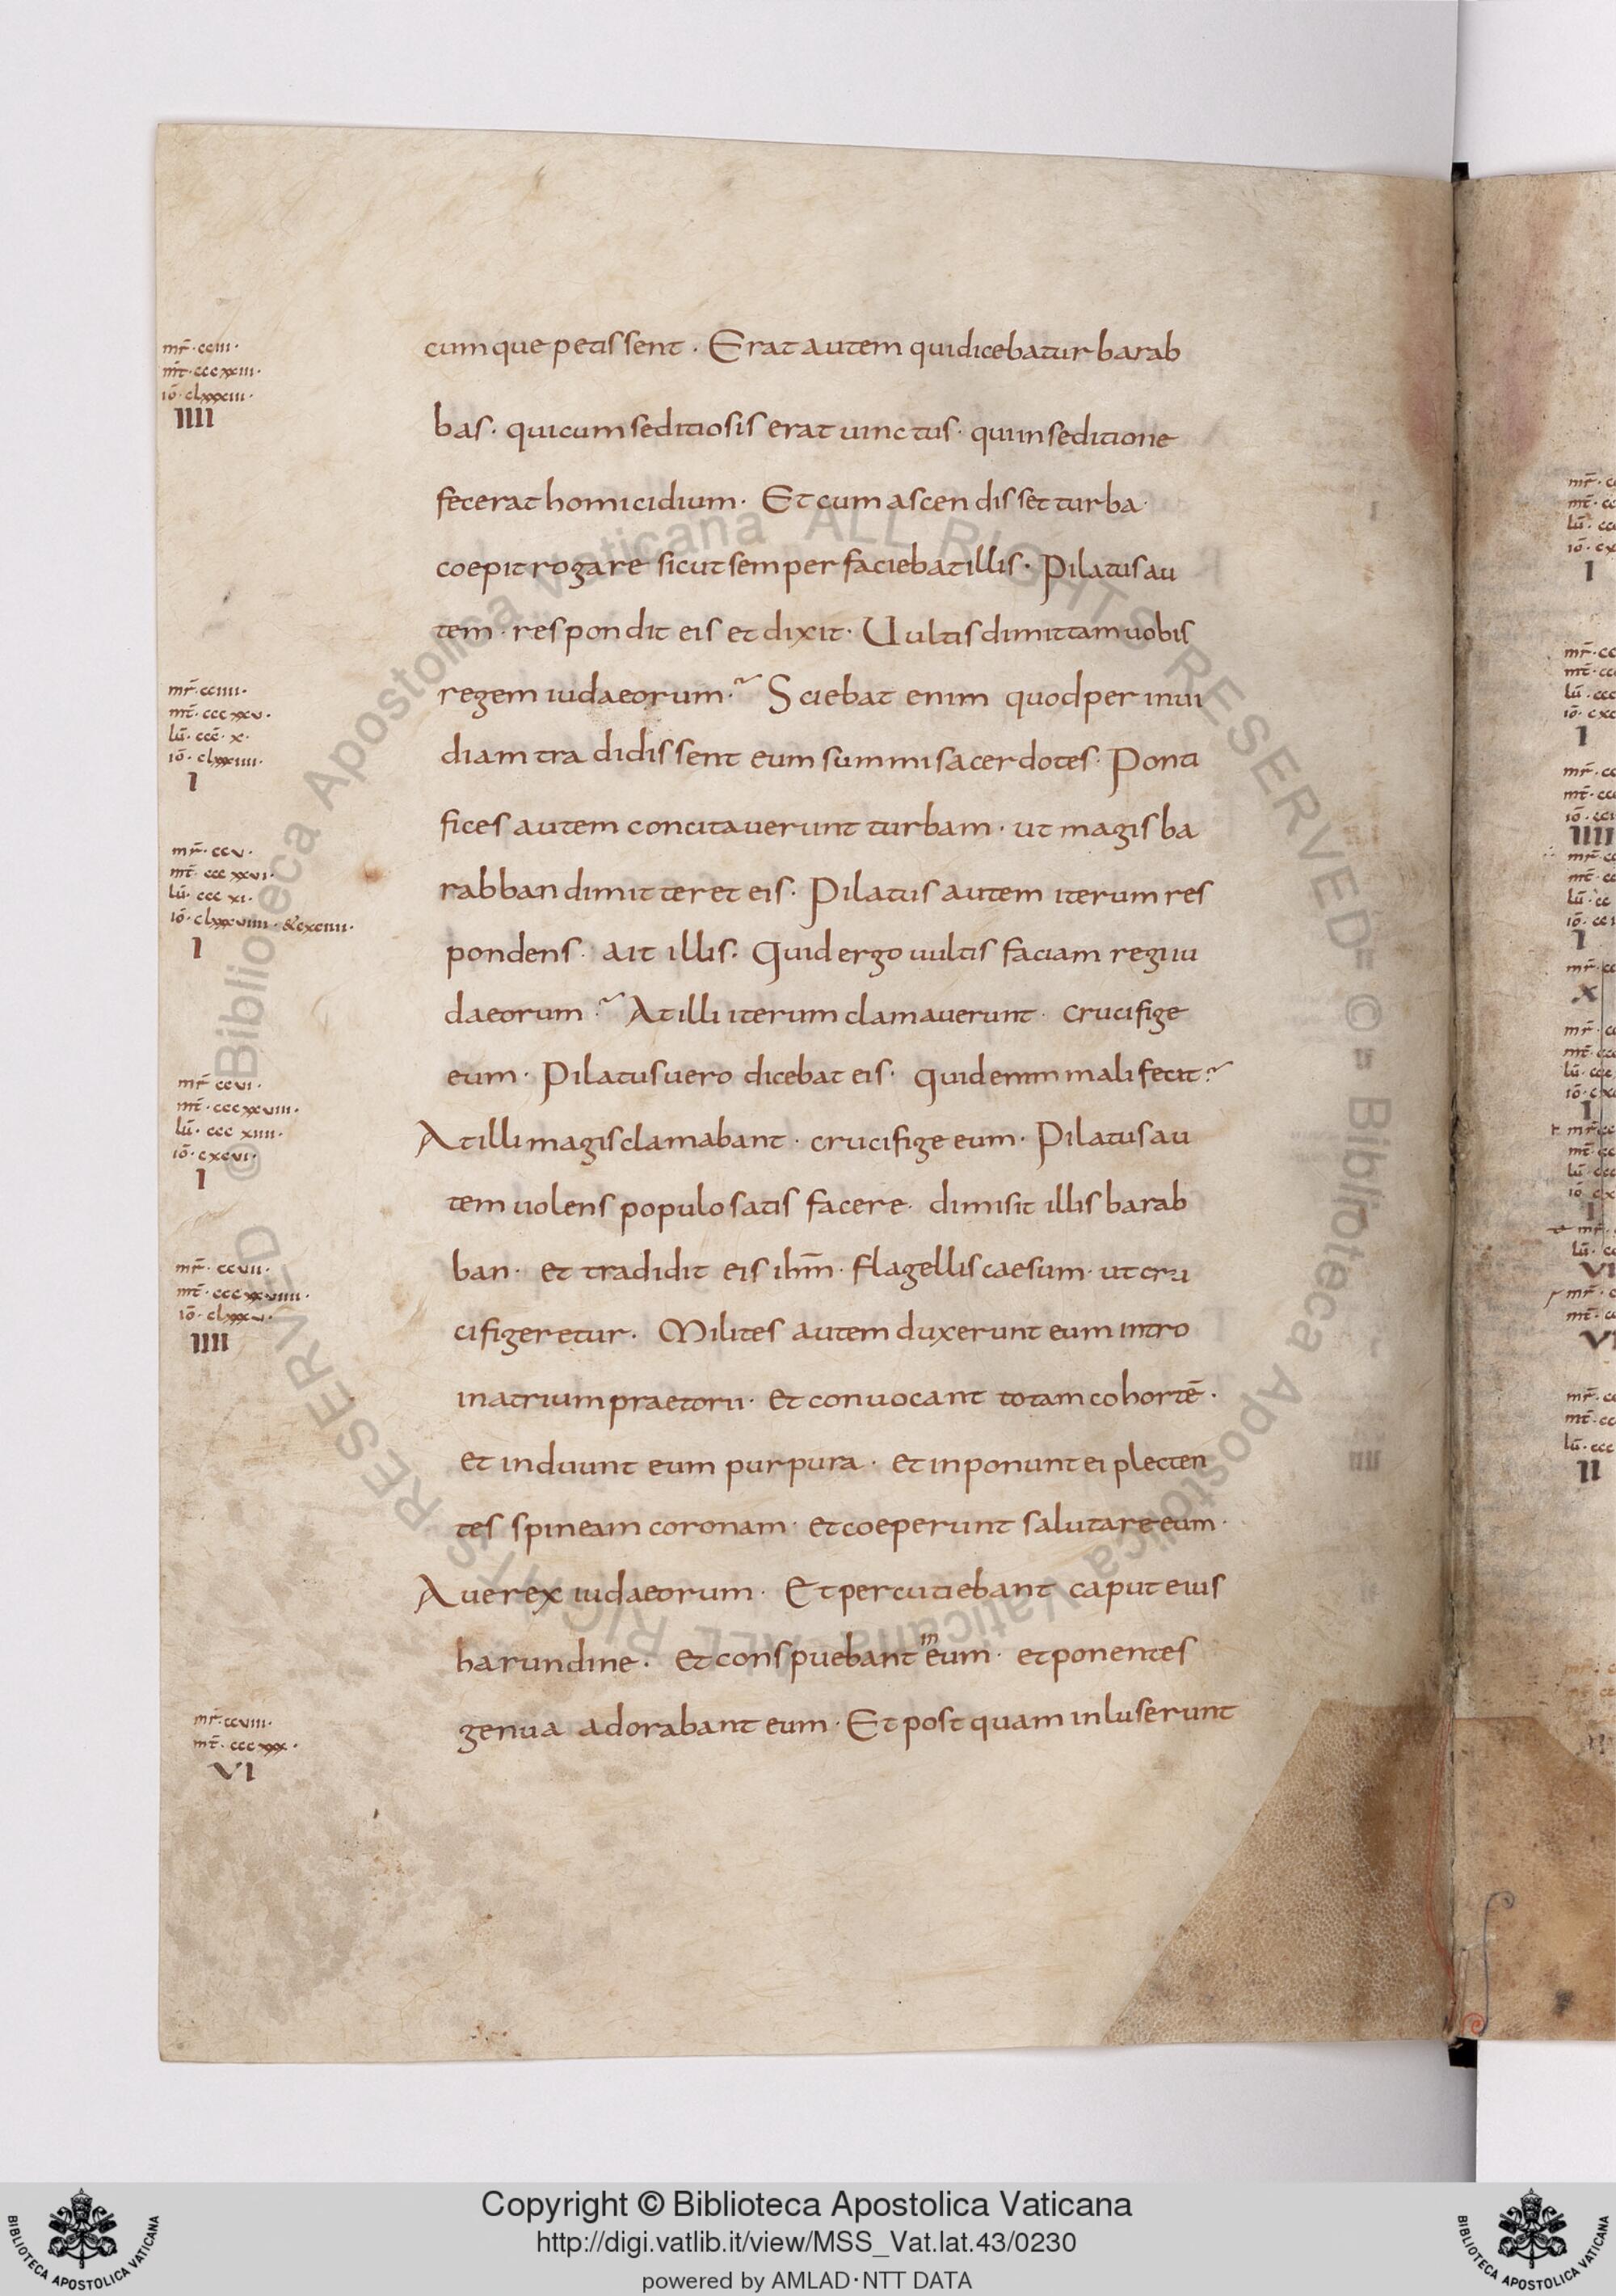 mr̄ · cciii ·
mt̄ · cccxxiii ·
iō · clxxxiii ·
IIII
cumque petissent · Erat autem qui dicebatur barab
bas · qui cum seditiosis erat uinctus · qui in seditione
fecerat homicidium · Et cum ascendisset turba ·
coepit rogare sicut semper faciebat illis · Pilatus au
tem · respondit eis et dixit · Uultis dimittam uobis
mr̄ · cciiii ·
mt̄ · cccxxv ·
lū · ccc · x ·
iō · clxxxiiii ·
I
regem iudaeorum ·~ Sciebat enim quod per inui
diam tradidissent eum summi sacerdotes · Ponti
fices autem concitauerunt turbam · ut magis ba
mr̄ · ccv ·
mt̄ · cccxxvi ·
lū · ccc xi ·
iō · clxxxviiii · & cxciiii ·
I
rabban dimitteret eis · Pilatus autem iterum res
pondens · ait illis · Quid ergo uultis faciam regi iu
daeorum ·~ At illi iterum clamauerunt · crucifige
eum · Pilatus uero dicebat eis · quid enim mali fecit ·~
mr̄ ccvi ·
mt̄ · cccxxviii ·
lū · ccc xiiii ·
iō · cxcvi ·
I
At illi magis clamabant · crucifige eum · Pilatus au
tem uolens populo satis facere · dimisit illis barab
mr̄ · ccvii ·
mt̄ · cccxxviiii ·
iō · clxxxv ·
IIII
ban · et tradidit eis ihm̄ · flagellis caesum · ut cru
cifigeretur · Milites autem duxerunt eum intro
in atrium praetorii · et conuocant totam cohortē ·
et induunt eum purpura · et inponunt ei plecten
tes spineam coronam · et coeperunt salutare eum ·
Aue rex iudaeorum · Et percutiebant caput eius
harundine · et conspuebant ᵐeum · et ponentes
mr̄ · ccviii ·
mt̄ · cccxxx ·
VI
genua adorabant eum · Et postquam inluserunt
© Biblioteca Apostolica Vaticana ALL RIGHTS RESERVED
Copyright © Biblioteca Apostolica Vaticana
http://digi.vatlib.it/view/MSS_Vat.lat.43/0230
powered by AMLAD·NTT DATA
BIBLIOTECA APOSTOLICA VATICANA
BIBLIOTECA APOSTOLICA VATICANA